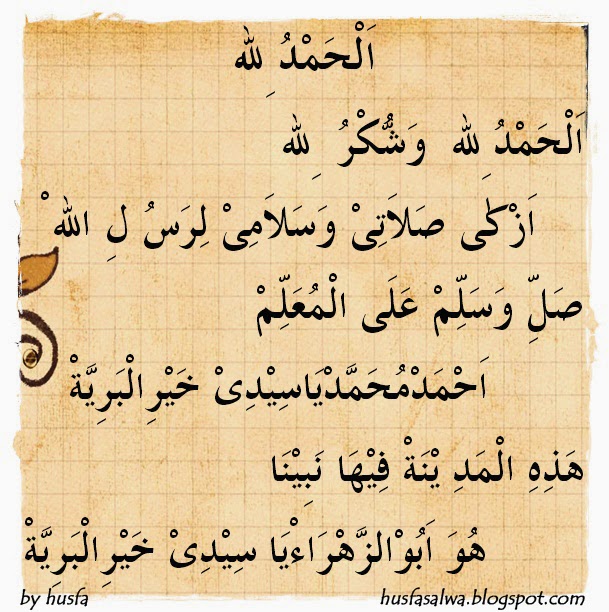 اَلْحَمْدُ ِلله
اَلْحَمْدُ ِلله وَشُّكْرُ ِلله
اَزْكٰى صَلاَتِىْ وَسَلاَمِىْ لِرَسُ لِ اللهْ
صَلِّ وَسَلِّمْ عَلَى الْمُعَلِّمْ
اَحْمَدْمُحَمَّدْيَاسِيْدِىْ خَيْرِالْبَرِيَّةْ
هَذِهِ الْمَدِ يْنَةْ فِيْهَا نَبِيْنَا
هُوَ اَبُوْالزَّهْرَاءْيَا سِيْدِىْ خَيْرِالْبَرِيَّةْ
by husfa
husfasalwa.blogspot.com